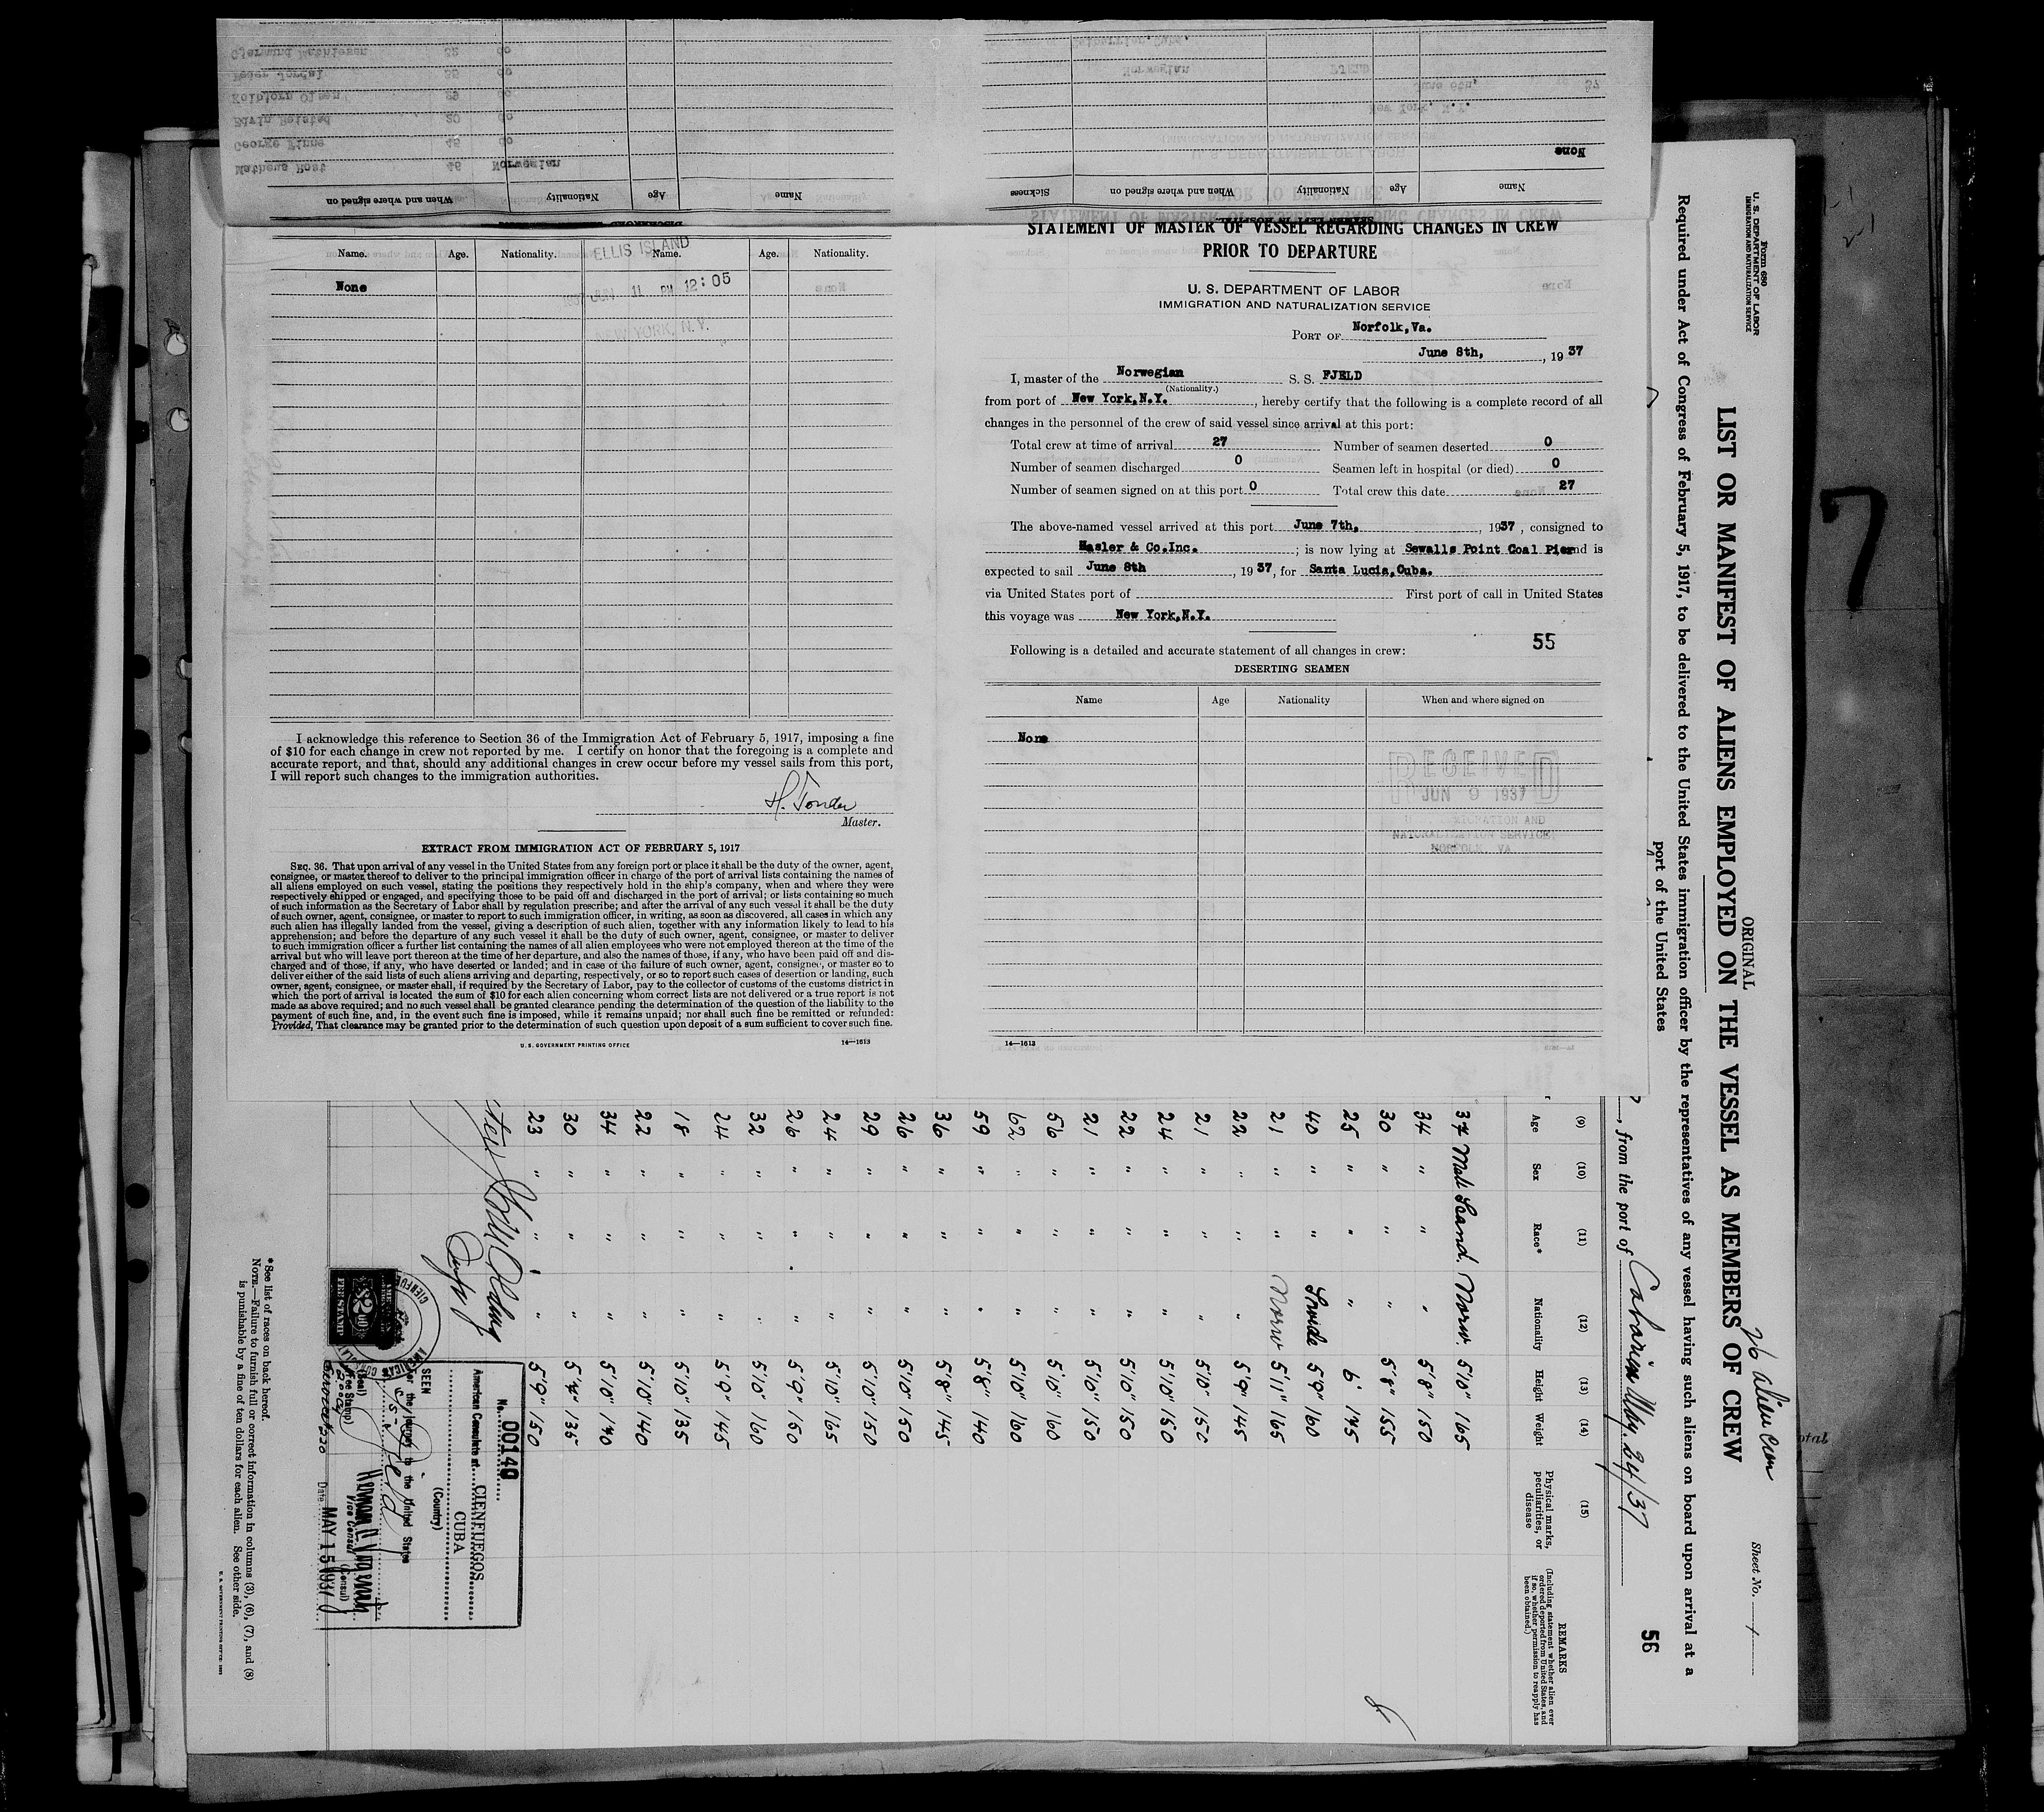 Name. Age. Nationality. Name. Age. Nationality.
ELLIS ISLAND
JUN 11 PM 12:05
NEW YORK, N.Y.
None
I acknowledge this reference to Section 36 of the Immigration Act of February 5, 1917, imposing a fine
of $10 for each change in crew not reported by me. I certify on honor that the foregoing is a complete and
accurate report, and that, should any additional changes in crew occur before my vessel sails from this port,
I will report such changes to the immigration authorities.
Master.
EXTRACT FROM IMMIGRATION ACT OF FEBRUARY 5, 1917
SEC. 36. That upon arrival of any vessel in the United States from any foreign port or place it shall be the duty of the owner, agent,
consignee, or master thereof to deliver to the principal immigration officer in charge of the port of arrival lists containing the names of
all aliens employed on such vessel, stating the positions they respectively hold in the ship's company, when and where they were
respectively shipped or engaged, and specifying those to be paid off and discharged in the port of arrival; or lists containing so much
of such information as the Secretary of Labor shall by regulation prescribe; and after the arrival of any such vessel it shall be the duty
of such owner, agent, consignee, or master to report to such immigration officer, in writing, as soon as discovered, all cases in which any
such alien has illegally landed from the vessel, giving a description of such alien, together with any information likely to lead to his
apprehension; and before the departure of any such vessel it shall be the duty of such owner, agent, consignee, or master to deliver
to such immigration officer a further list containing the names of all alien employees who were not employed thereon at the time of the
arrival but who will leave port thereon at the time of her departure, and also the names of those, if any, who have been paid off and dis-
charged and of those, if any, who have deserted or landed; and in case of the failure of such owner, agent, consignee, or master so to
deliver either of the said lists of such aliens arriving and departing, respectively, or so to report such cases of desertion or landing, such
owner, agent, consignee, or master shall, if required by the Secretary of Labor, pay to the collector of customs of the customs district in
which the port of arrival is located the sum of $10 for each alien concerning whom correct lists are not delivered or a true report is not
made as above required; and no such vessel shall be granted clearance pending the determination of the question of the liability to the
payment of such fine, and, in the event such fine is imposed, while it remains unpaid; nor shall such fine be remitted or refunded:
Provided, That clearance may be granted prior to the determination of such question upon deposit of a sum sufficient to cover such fine.
U. S. GOVERNMENT PRINTING OFFICE 14—1613
When and where signed on Nationality Age Name
Sickness When and where signed on Nationality Age Name
None
Mathens Rost 46 Norwegian
George Finne 45 do
STATEMENT OF MASTER OF VESSEL REGARDING CHANGES IN CREW
PRIOR TO DEPARTURE
U. S. DEPARTMENT OF LABOR
IMMIGRATION AND NATURALIZATION SERVICE
PORT OF Norfolk,Va.
June 8th, , 19 37
I, master of the Norwegian S. S. FJELD
(Nationality.)
from port of New York,N.Y. , hereby certify that the following is a complete record of all
changes in the personnel of the crew of said vessel since arrival at this port:
Total crew at time of arrival 27 Number of seamen deserted 0
Number of seamen discharged 0 Seamen left in hospital (or died) 0
Number of seamen signed on at this port 0 Total crew this date 27
The above-named vessel arrived at this port June 7th, , 1937 , consigned to
Hasler & Co.Inc. ; is now lying at Sewalls Point Coal Pier and is
expected to sail June 8th , 19 37, for Santa Lucia,Cuba.
via United States port of First port of call in United States
this voyage was New York,N.Y.
55
Following is a detailed and accurate statement of all changes in crew:
DESERTING SEAMEN
Name Age Nationality When and where signed on
None
RECEIVED
JUN 9 1937
IMMIGRATION AND
NATURALIZATION SERVICE
NORFOLK, VA
14—1613
Form 680
U. S. DEPARTMENT OF LABOR
IMMIGRATION AND NATURALIZATION SERVICE
ORIGINAL
26 alien crew
Sheet No. 1
LIST OR MANIFEST OF ALIENS EMPLOYED ON THE VESSEL AS MEMBERS OF CREW
Required under Act of Congress of February 5, 1917, to be delivered to the United States immigration officer by the representatives of any vessel having such aliens on board upon arrival at a
port of the United States
, from the port of Caibarien May. 24/37
56
(9) (10) (11) (12) (13) (14) (15)
Age Sex Race* Nationality Height Weight Physical marks, peculiarities, or disease
REMARKS
(Including statement whether alien ever ordered deported from United States, and if so, whether permission to reapply has been obtained.)
37 Male Scand. Norw. 5'10" 165
34 " " " 5'8" 150
30 " " " 5'8" 155
25 " " " 6' 175
40 " " Swede 5'9" 160
21 " " Norw 5'11" 165
22 " " " 5'9" 145
21 " " " 5'10" 150
24 " " " 5'10" 150
22 " " " 5'10" 150
21 " " " 5'10" 150
56 " " " 5'10" 160
62 " " " 5'10" 160
59 " " " 5'8" 140
36 " " " 5'8" 145
26 " " " 5'10" 150
29 " " " 5'10" 150
24 " " " 5'10" 165
26 " " " 5'9" 150
32 " " " 5'10" 160
24 " " " 5'9" 145
18 " " " 5'10" 135
22 " " " 5'10" 140
34 " " " 5'10" 170
30 " " " 5'4" 135
23 " " " 5'9" 150
No. 00140
American Consulate at CIENFUEGOS
CUBA
(Country)
SEEN
For the journey to the United States
Vice Consul
(Consul)
(Seal)
(Fee Stamp)
Date MAY 15 1937
$2.00
FEE STAMP
*See list of races on back hereof.
NOTE.—Failure to furnish full or correct information in columns (3), (6), (7), and (8)
is punishable by a fine of ten dollars for each alien. See other side.
7